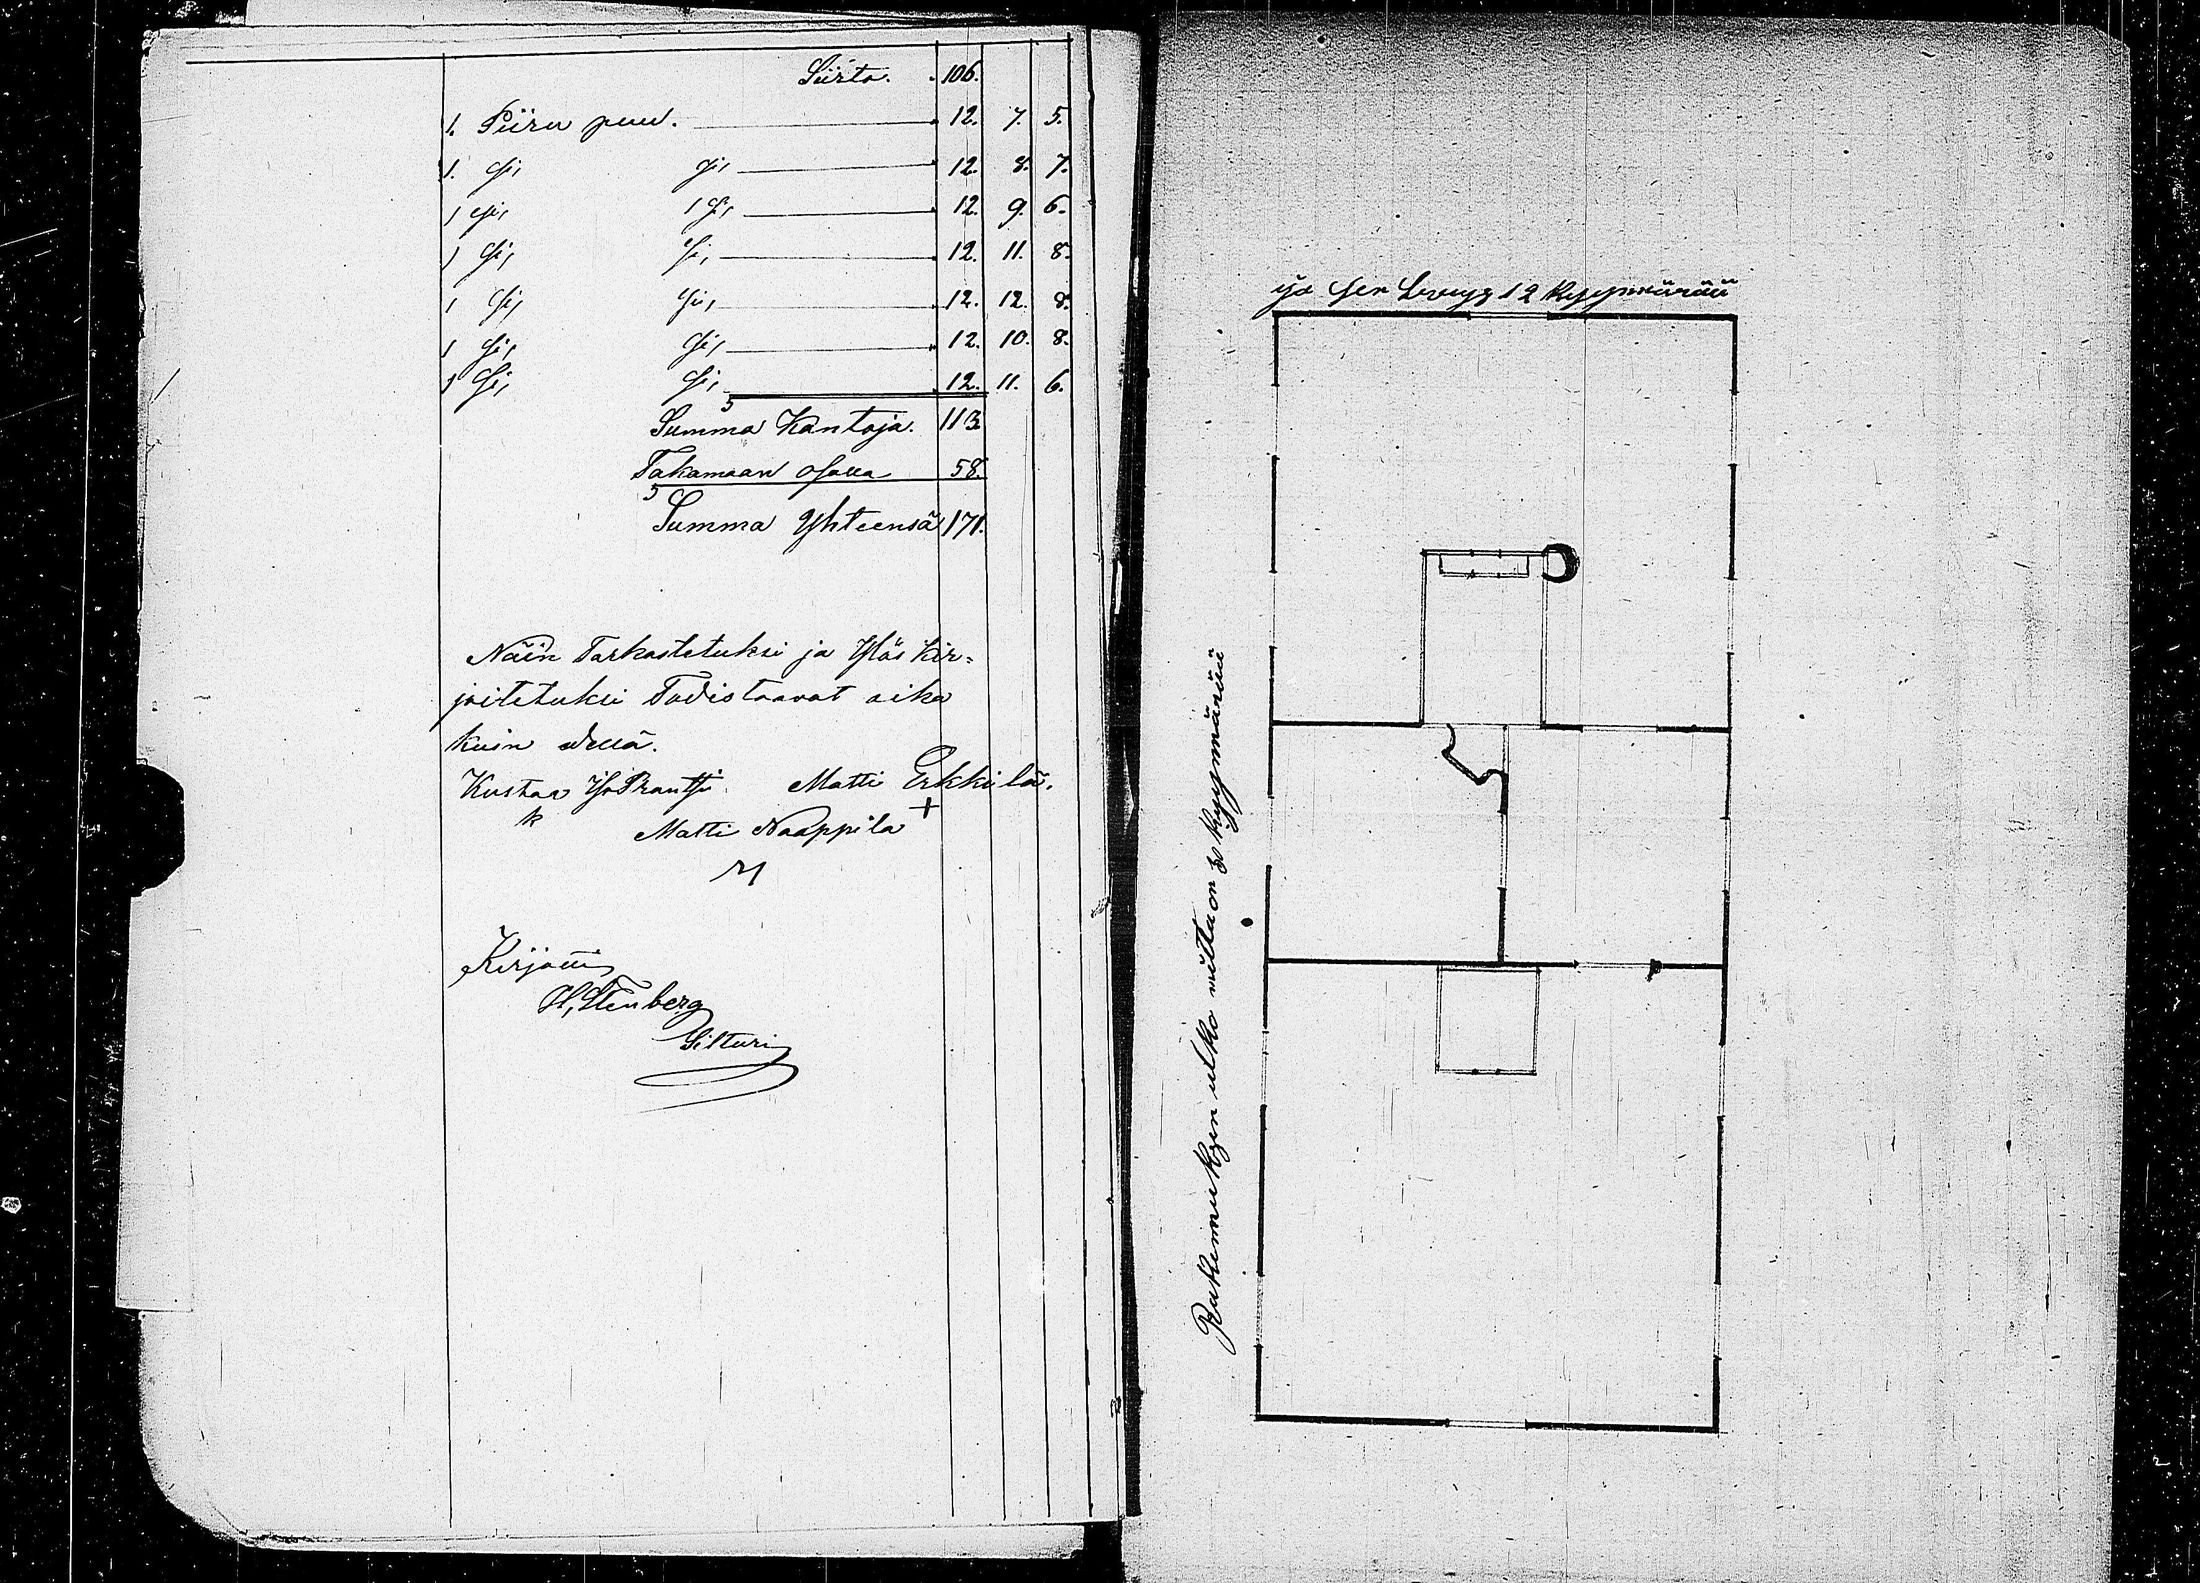 Siirto. 106.
1. Piiru puu. 12. 7. 5.
1. si, si, 12. 8. 7.
1 si, 1 si, 12. 9. 6.
1 si, si, 12. 11. 8.
1 si, si, 12. 12. 8.
1 si, si, 12. 10. 8.
1 si, si, 12. 11. 6.
Summa Kantoja. 113.
Takamaan osalla 58.
Summa Yhteensä 171.
Näin Tarkastetuksi ja Ylös kir-
joitetuksi Todistaavat aika
kuin edellä.
Kustaa Matti Erkkilä.
k +
Matti Naappila
M
Kirjotti
H, Stenberg
Silturi
ja sen leveys 12 kyymärää
Rakennuksen ulko mitta on 30 kyymärää